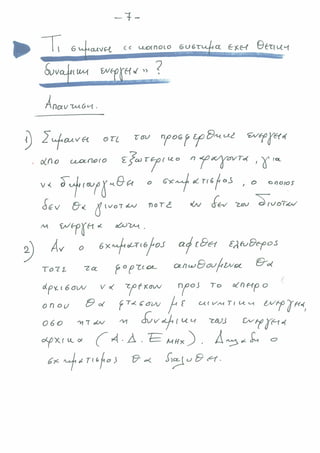 - 7 -
Τι σημαινει « καποιο συστημα εχει θετικη
δυναμικη ενεργεια » ?
Απαντηση.
1) Σημαινει οτι του προσφερθηκε ενεργεια
απο καποιο εξωτερικο παραγοντα, για
να δημιουργηθει ο σχηματισμος, ο οποιος
δεν θα γινοταν ποτε αν δεν του δινοταν
η ενεργεια αυτη.
2) Αν ο σχηματισμος αφεθει ελευθερος
τοτε τα φορτια απωθουμενα θα
αρχισουν να τρεχουν προς το απειρο
οπου θα φτασουν με κινητικη ενεργεια,
οσο ηταν η δυναμικη τους ενεργεια
αρχικα (Α.Δ.Ε μηχ). Δηλαδη ο
σχηματισμος θα διαλυθει.